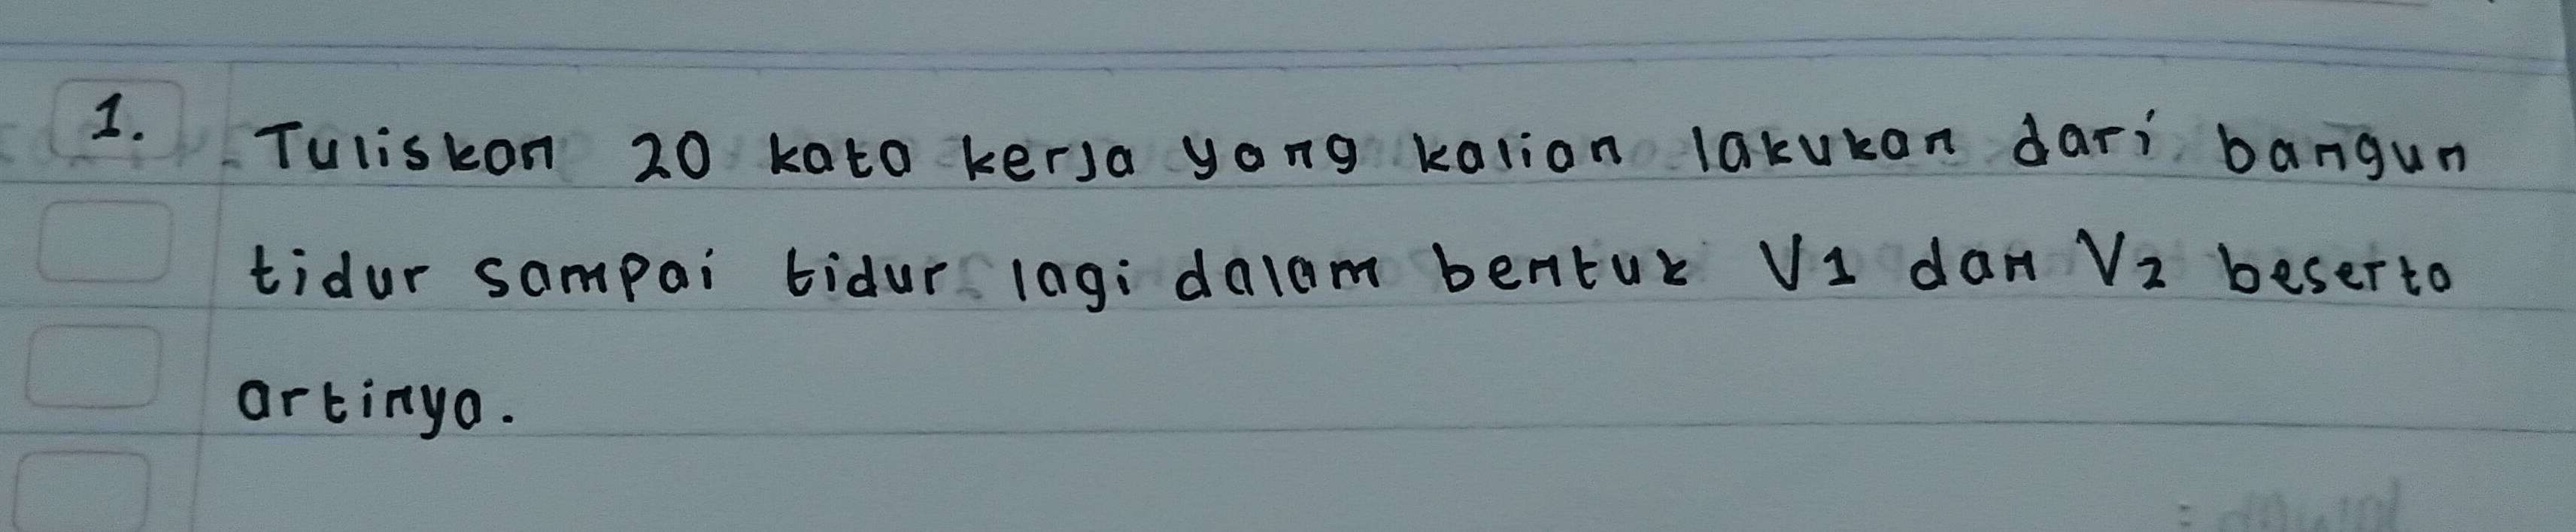 1. Tuliskan 20 kata kerja yang kalian lakukan dari bangun
tidur sampai tidur lagi dalam bentuk V1 dan V2 beserta
artinya.